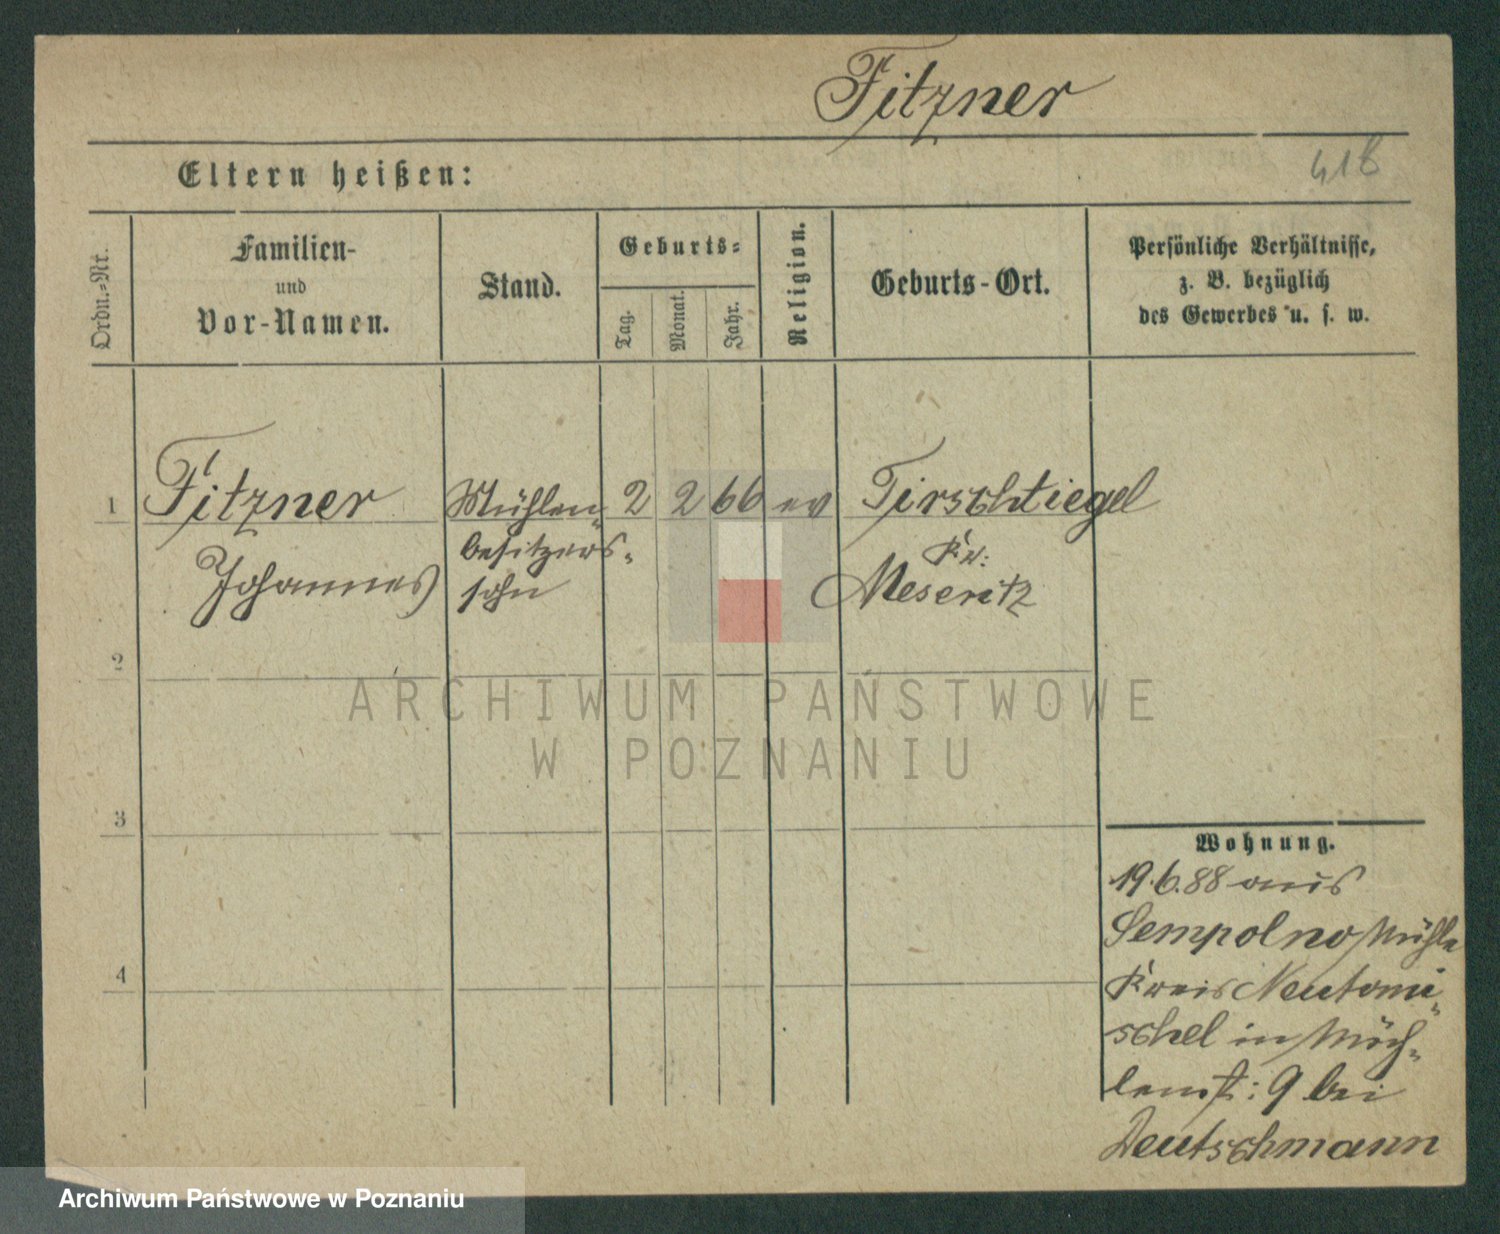 Fitzner
Eltern heißen:
418
Ordn.-Nr.
Familien-
und
Vor-Namen.
Stand.
Geburts-
Tag.
Monat.
Jahr.
Religion.
Geburts-Ort.
Persönliche Verhältnisse,
z. B. bezüglich
des Gewerbes u. s. w.
1 Fitzner Mühlen- 2 2 66 ev Tirschtiegel
besitzers- Kr:
Johannes sohn Meseritz
2
ARCHIWUM PAŃSTWOWE
W POZNANIU
3
Wohnung.
19.6.88 aus
Sempolno Mühle
4
Kreis Neutomi-
schel in
lenst: 9 bei
Deutschmann
Archiwum Państwowe w Poznaniu